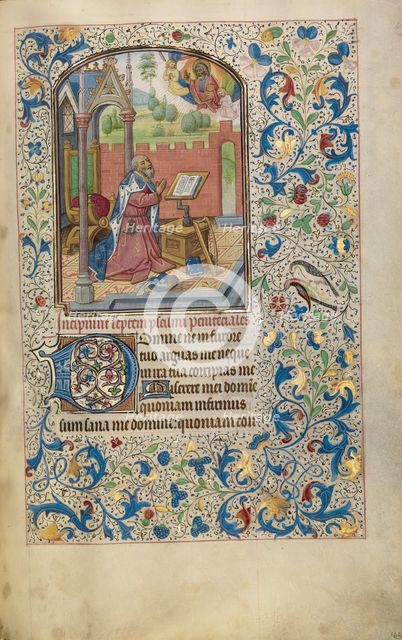 Incipiunt septem psalmi penitenciales
Domine ne in furore
tuo arguas me neque
in ira tua corripias me
Miserere mei domine
quoniam infirmus
sum sana me domine: quoniam con
Heritage
Heritage
Heritage